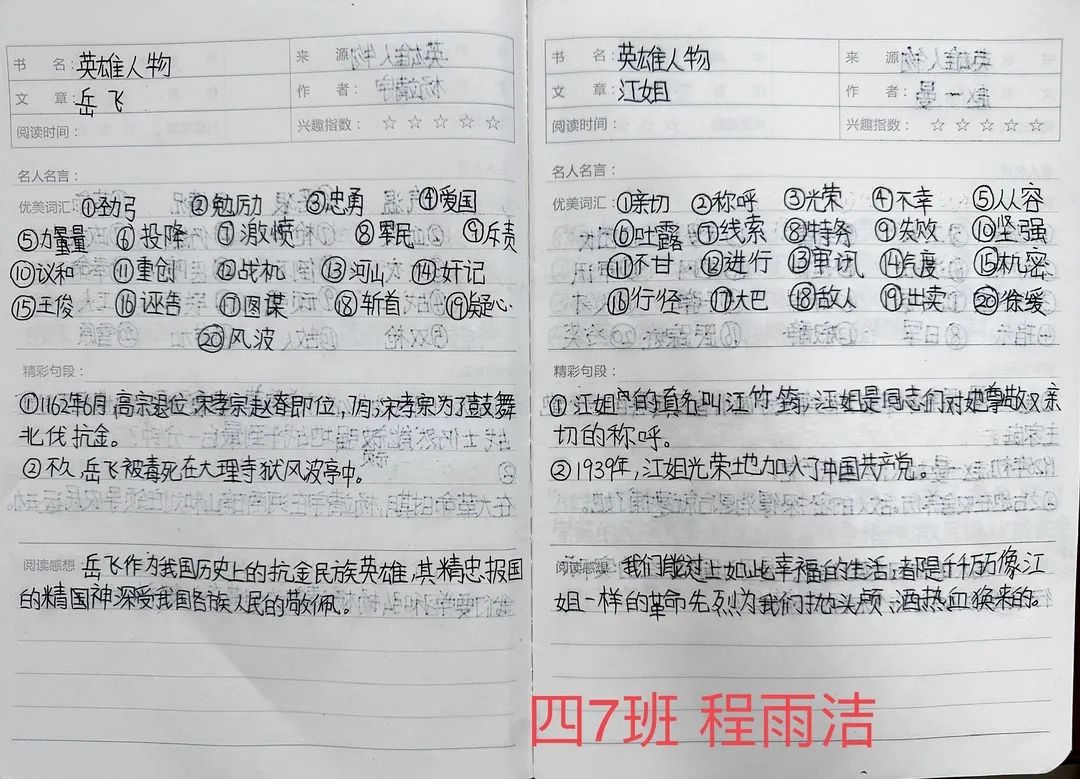 书 名：英雄人物 来 源：
文 章：岳飞 作 者：
阅读时间： 兴趣指数：☆ ☆ ☆ ☆ ☆
名人名言：
优美词汇：①劲弓 ②勉励力 ③忠勇 ④爱国
⑤力量量 ⑥投降 ⑦激愤 ⑧军民 ⑨斥责
⑩议和 ⑪重创 ⑫战机 ⑬河山 ⑭奸记
⑮王俊 ⑯诬告 ⑰图谋 ⑱斩首 ⑲疑心
⑳风波
精彩句段：
①1162年6月，高宗退位，宋孝宗赵眘即位，7月，宋孝宗为了鼓舞
北伐抗金。
②不久，岳飞被毒死在大理寺狱风波亭中。
阅读感想：岳飞作为我国历史上的抗金民族英雄，其精忠报国
的精国神深受我国各族人民的敬佩。
书 名：英雄人物 来 源：
文 章：江姐 作 者：
阅读时间： 兴趣指数：☆ ☆ ☆ ☆ ☆
名人名言：
优美词汇：①亲切 ②称呼 ③光荣 ④不幸 ⑤从容
⑥吐露 ⑦线索 ⑧特务 ⑨失败 ⑩坚强
⑪不甘 ⑫进行 ⑬审讯 ⑭气度 ⑮机密
⑯行径 ⑰大巴 ⑱敌人 ⑲出卖 ⑳徐缓
精彩句段：
①江姐的真名叫江竹筠，江姐是同志们对她尊敬又亲
切的称呼。
②1939年，江姐光荣地加入了中国共产党。
阅读感想：我们能过上如此幸福的生活，都是千千万万像江
姐一样的革命先烈为我们抛头颅、洒热血换来的。
四7班 程雨洁